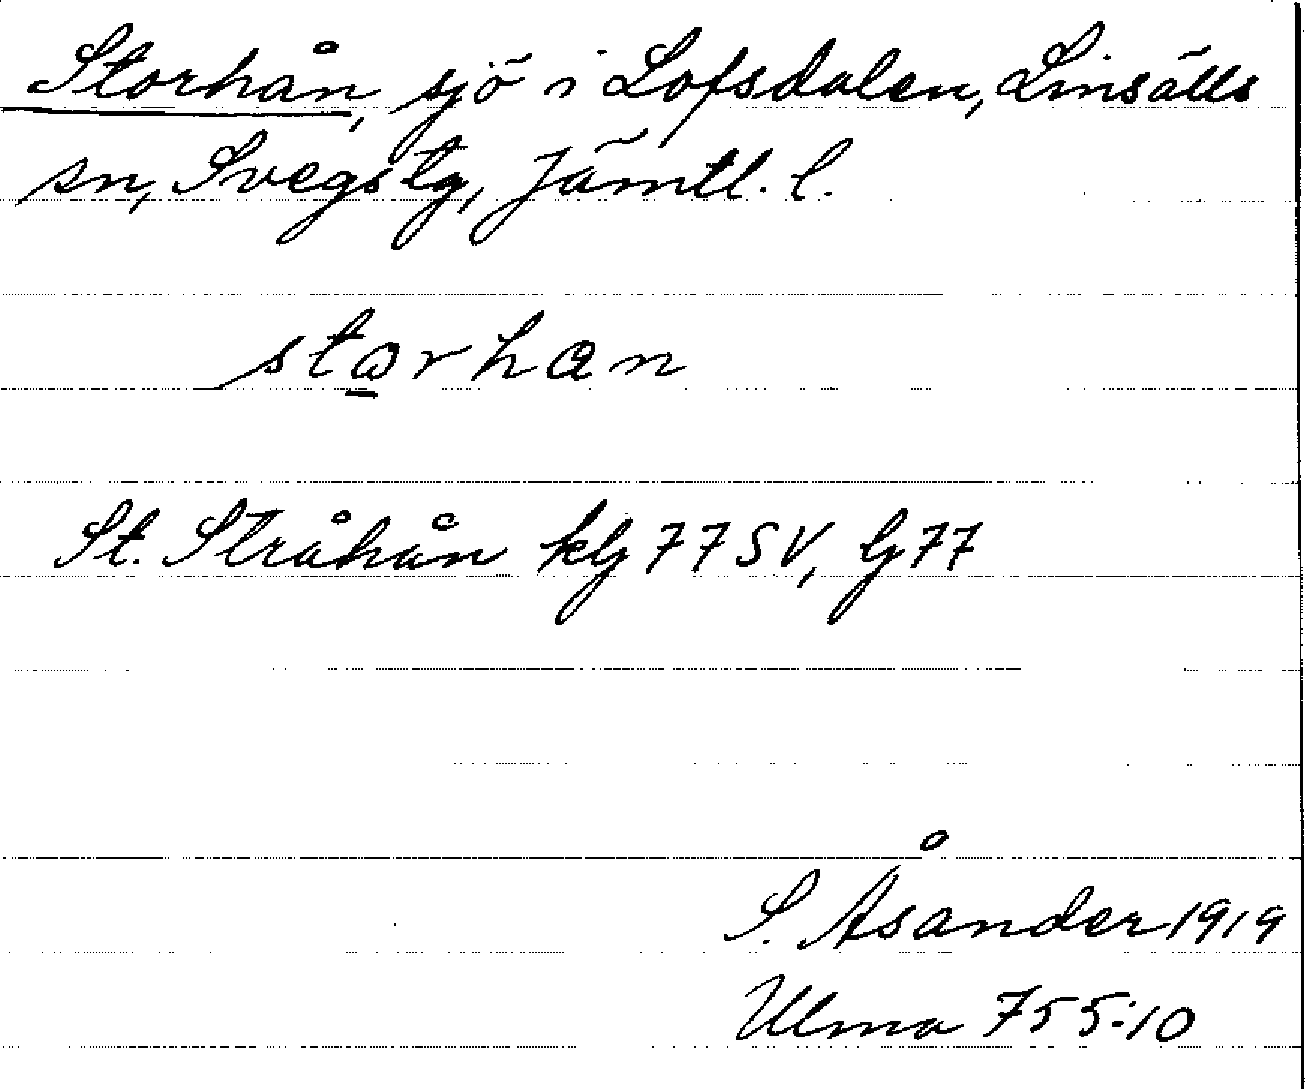 Storhån, sjö i Lofsdalen, Linsälls
sn, Svegs tg, Jämtl. l.
storhan
St. Stråhån kbg 77 SV, bg 77
S. Åsander 1919
Ulma 755:10